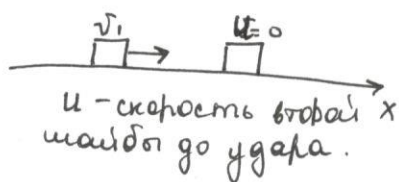 v₁ u=0
u - скорость второй x
шайбы до удара.